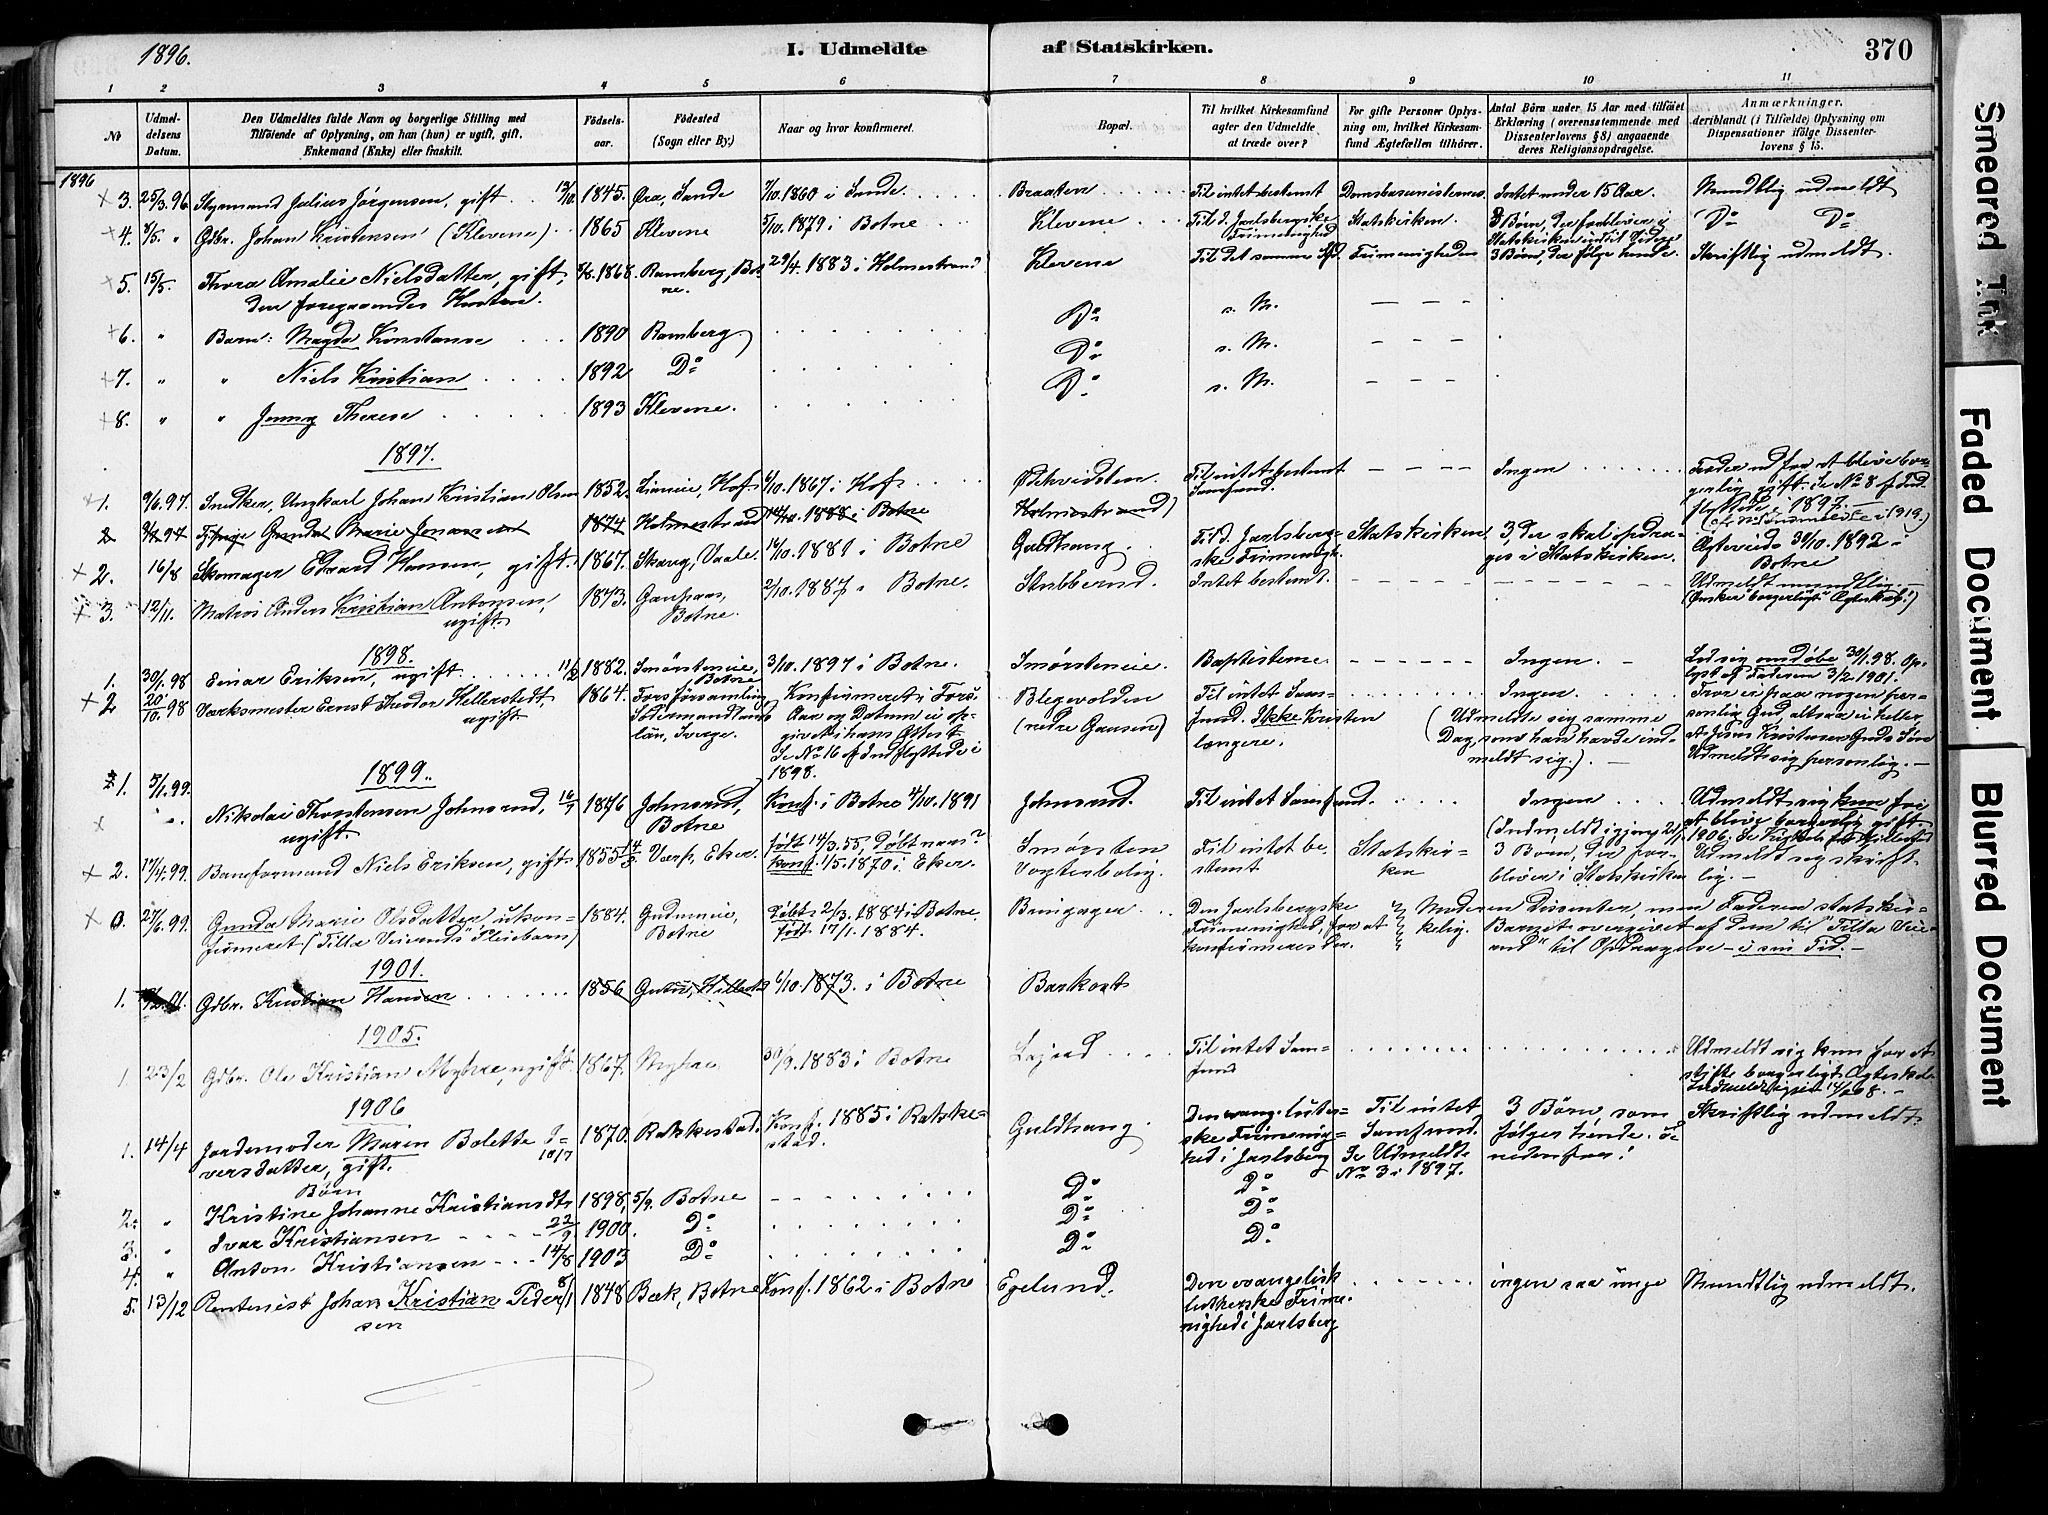 1896.
I. Udmeldte
af Statskirken.
370
1 2 3 4 5 6 7 8 9 10 11
No
Udmeldelsens Datum.
Den Udmeldtes fulde Navn og borgerlige Stilling med
Tilföiende af Oplysning, om han (hun) er ugift, gift,
Enkemand (Enke) eller fraskilt.
Födselsaar.
Födested
(Sogn eller By.)
Naar og hvor konfirmeret.
Bopæl.
Til hvilket Kirkesamfund
agter den Udmeldte
at træde over?
For gifte Personer Oplysning om, hvilket Kirkesamfund Ægtefællen tilhörer.
Antal Börn under 15 Aar med tilföiet
Erklæring (overensstemmende med
Dissenterlovens § 8) angaaende
deres Religionsopdragelse.
Anmærkninger,
deriblandt (i Tilfælde) Oplysning om
Dispensationer ifölge Dissenterlovens § 15.
1896
3. 25/3.96. Styrmand Julius Jørgensen, gift 1845. Øra, Sande 7/10.1860 i Sande Braaten Til intet bestemt Intet under 15 Aar. Mundtlig udmeldt
4. Gdbr. Johan Kristensen (Klevene) 1865 Klevene 5/10.1879 i Botne Klevene Til d. Jarlsbergske Frimenighed Statskirken. 3 Børn, der forbliver i Statskirken indtil videre Do Do
5. 15/5. Thora Amalie Nielsdatter, gift, den foregaaendes Hustru. 1868. Ramberg, Botne. 29/4.1883 i Holmestrand Klevene Til det samme Sfd. Frimenigheden 3 Børn, der følge hende. Skriftlig udmeldt.
6. " Barn: Magda Konstanse 1890 Ramberg Do s. M.
7. " " Niels Kristian 1892 Do Do s. M.
8. " " Jenny Therese 1893 Klevene. Do s. M.
1897.
1. 9/6.97. Snedker, Ungkarl Johan Kristian Olsen 1852. Hof 1867 i Hof Holmestrand) Til intet bestemt Samfund. Ingen Træder ud for at blive borgerlig gift. Se No 8 af Indflyttede i 1897.
2 Gunda Marie 1874 Holmestrand 14/10.1888 i Botne
2. 16/8 Skomager Edvard Hansen, gift. 1867. Vaale. 1881 i Botne Guldhaug. Til d. Jarlsbergske Frimenigh. Statskirken 3, der skal opdrages i Statskirken. Ægteviede 30/10.1892 i Botne
3. 12/11. Matros Anders Kristian Antonsen, ugift. 1873. Botne. 2/10.1887 i Botne. Stubberud. Intet bestemt. Udmeldt mundtlig. (Ønsker "borgerligt" Ægteskab!)
1898.
1. 30/1.98 Einar Eriksen, ugift. 1882. Smørsteneie, Botne 3/10.1897 i Botne. Smørsteneie. Baptisterne. Ingen. Lod sig omdøbe 30/1.98. Oplyst af Faderen 3/2.1901.
2 20/10.98 Værksmester Ernst Teodor Hellerstedt, ugift 1864. Fors församling, Södermandlands län, Sverge. Konfirmeret i Fors. Aar og Datum ei opgivet i hans Attest Se No 16 af Indflyttede i 1898. Blegevolden (nedre Gausen) Til intet Samfund. Ikke Kristen længere. Ingen. (Udmeldte sig samme Dag, som han havde indmeldt sig.). Tror ei paa nogen personlig Gud, altsaa ei heller at Jesus Kristus er Guds Søn Udmeldt sig personlig.
1899.
1. 5/1.99. Nikolai Thorstensen Johnsrud, ugift. 1876 Johnsrud, Botne Konf. i Botne 4/10.1891 Johnsrud. Til intet Samfund. Ingen Udmeldt sig kun for at blive borgerlig gift.
2. 17/4.99. Baneformand Niels Eriksen, gift 1855 Eker. født 14/3.55, Døbt naar? konf. 1/5.1870 i Eker. Smørsten Vogterbolig. Til intet bestemt Statskirken 3 Børn, der forbliver i Statskirken Udmeldt sig skriftlig.
0. 27/6.99. Gunda Marie Olsdatter ukonfirmeret ("Tilta Veierud's" Pleiebarn) 1884. Botne Døbt 2/3.1884 i Botne. født 17/1.1884. Den Jarlsbergske Frimenighed, for at konfirmeres der. Moderen Dissenter, men Faderen statskirkelig. Barnet overgivet af dem til "Tilta Veierud" til Opdragelse i sin Tid.
1901.
1. Gdbr. Kristian Hansen 1856 6/10.1873. i Botne Barkost
1905.
1. 23/2 Gdbr. Ole Kristian Myhre, ugift. 1867. Myhre 30/9.1883 i Botne Til intet Samfund Udmeldt sig kun for at stifte borgerligt Ægteskab.
1906
1. 14/4 Jordemoder Maren Bolette Iversdatter, gift. 1870. Rakkestad. Konf. 1885 i Rakkestad. Guldhaug Den evang. lutherske Frimenighed i Jarlsberg Til intet Samfund. Se Udmeldte No 3 i 1897. 3 Børn, som følger hende. Se nedenfor! Skriftlig udmeldt.
Børn
2. " Kristine Johanne Kristiansdtr 1898, 5/9. Botne Do Do
3. " Ivar Kristiansen 22/9 1900. Do Do Do
4. " Anton Kristiansen 14/8 1903 Do Do Do
5. 13/12 Rentenist Johan Kristian Pedersen 8/1 1848 Bæk, Botne Konf. 1862 i Botne Egelund. Den evangelisk lutherske Frimenighed i Jarlsberg ingen saa unge Mundtlig udmeldt.
Smeared Ink
Faded Document
Blurred Document